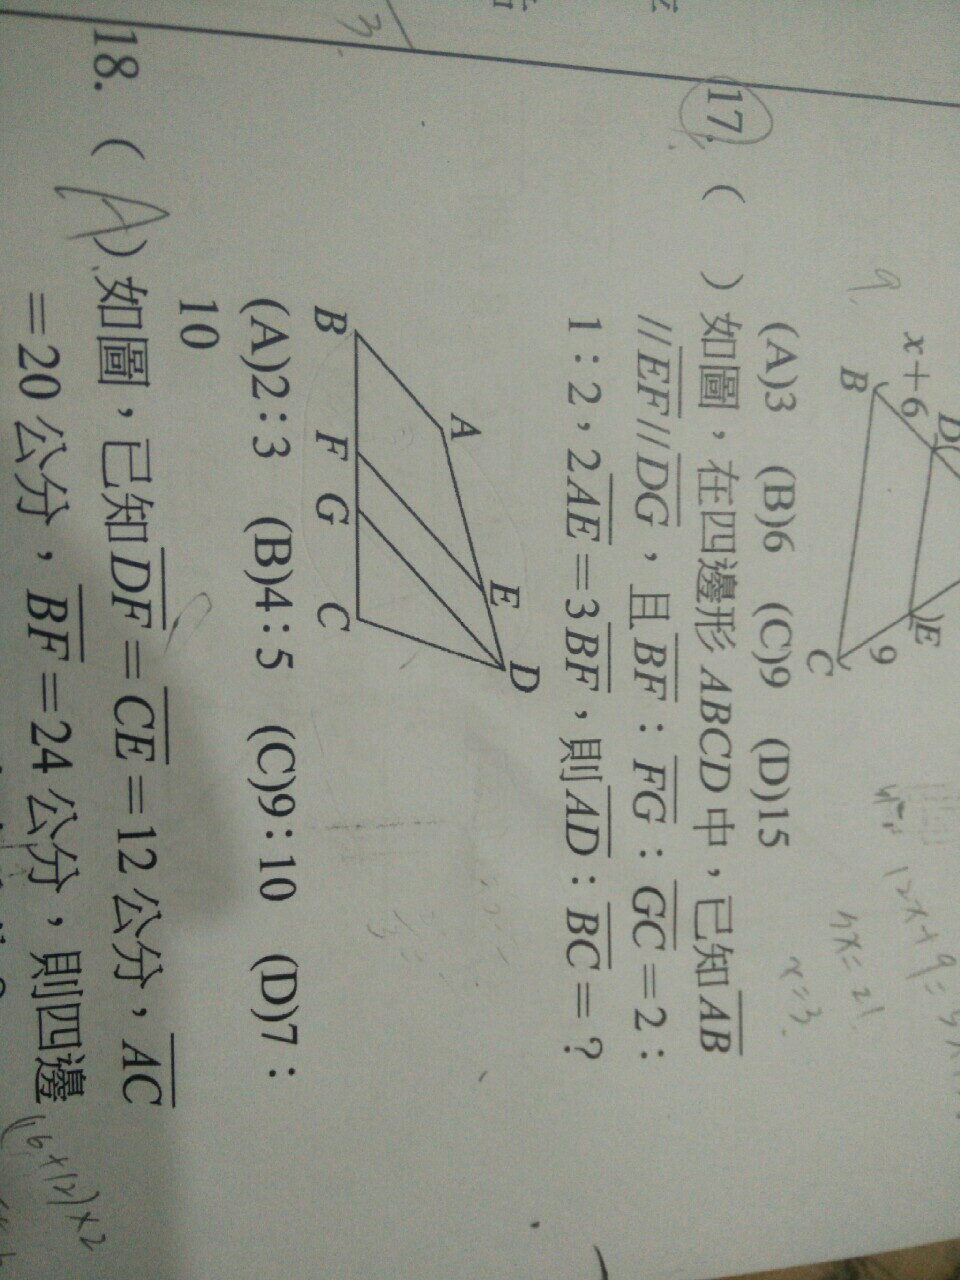 x+6
D
B
E
9
C
9
(A)3 (B)6 (C)9 (D)15
12x+9=
x=3
17. ( ) 如圖，在四邊形 ABCD 中，已知AB
//EF//DG，且BF：FG：GC=2：
1：2，2AE=3BF，則AD：BC=？
A
E
D
B
F
G
C
(A)2：3 (B)4：5 (C)9：10 (D)7：
10
3.
18. (A) 如圖，已知DF=CE=12 公分，AC
=20 公分，BF=24 公分，則四邊
(16+12)×2